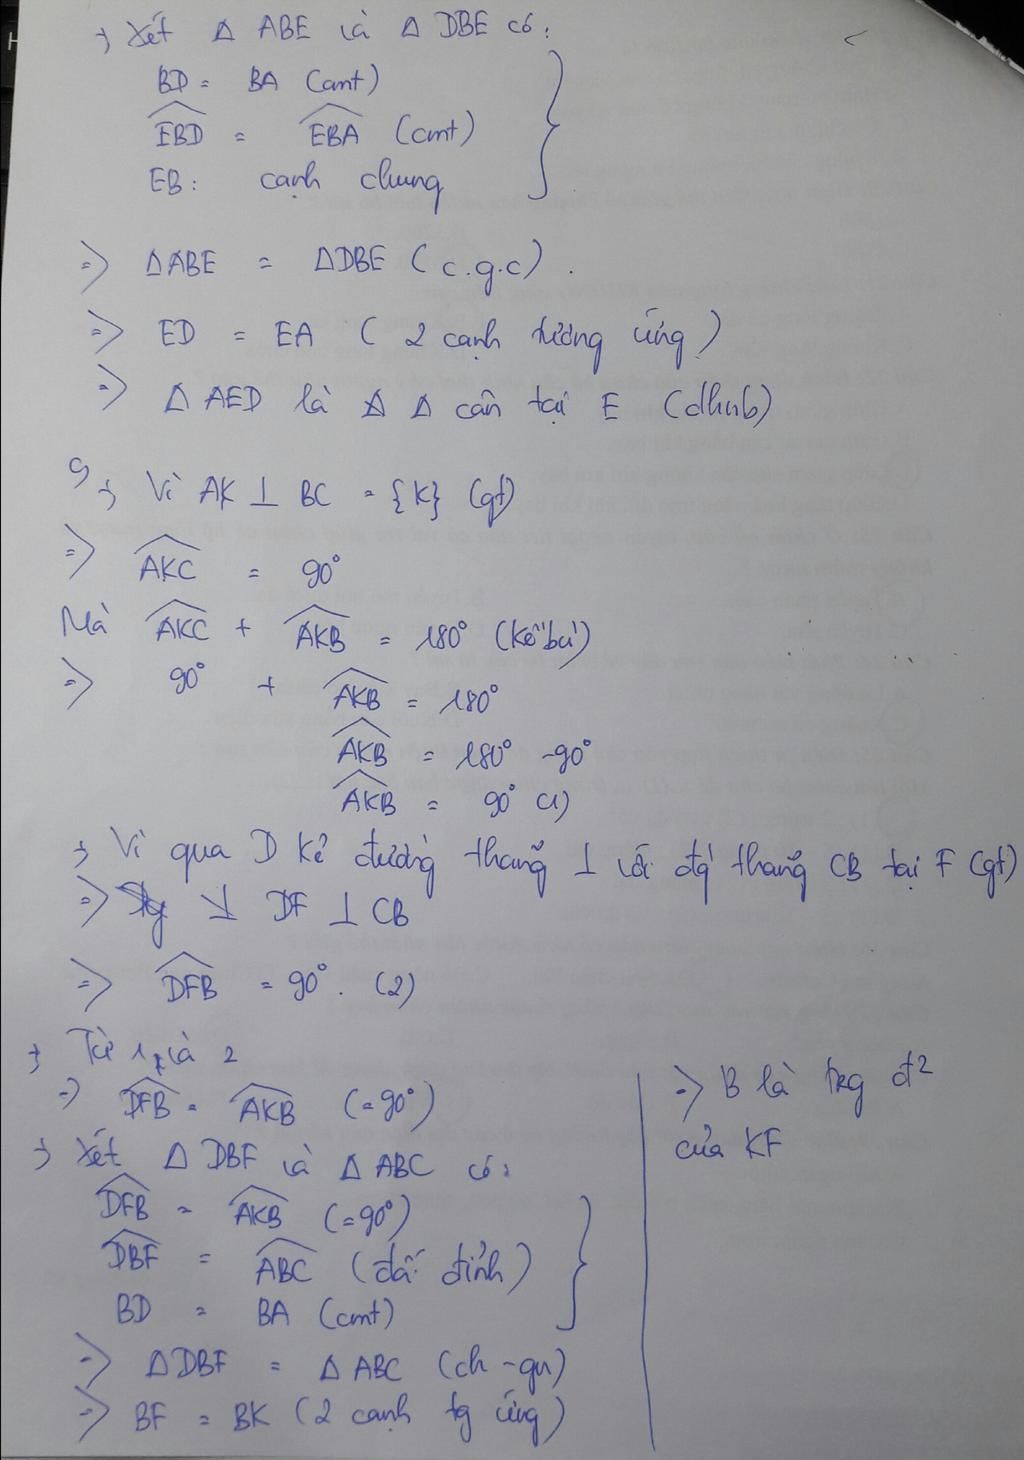 +) Xét Δ ABE và Δ DBE có:
BD = BA (cmt)
EBD = EBA (cmt)
EB: cạnh chung
=> ΔABE = ΔDBE (c.g.c).
=> ED = EA (2 cạnh tương ứng)
=> Δ AED là Δ cân tại E (dhnb)
c, +) Vì AK ⊥ BC = {K} (gt)
=> AKC = 90°
Mà AKC + AKB = 180° (kề bù)
=> 90° + AKB = 180°
AKB = 180° - 90°
AKB = 90° (1)
+) Vì qua D kẻ đường thẳng ⊥ với đg thẳng CB tại F (gt)
=> DF ⊥ CB
=> DFB = 90°. (2)
+) Từ 1 và 2
=> DFB = AKB (=90°)
+) Xét Δ DBF và Δ ABC có:
DFB = AKB (=90°)
DBF = ABC (đối đỉnh)
BD = BA (cmt)
=> ΔDBF = Δ ABC (ch-gn)
=> BF = BK (2 cạnh tg ứng)
=> B là trg đ²
của KF